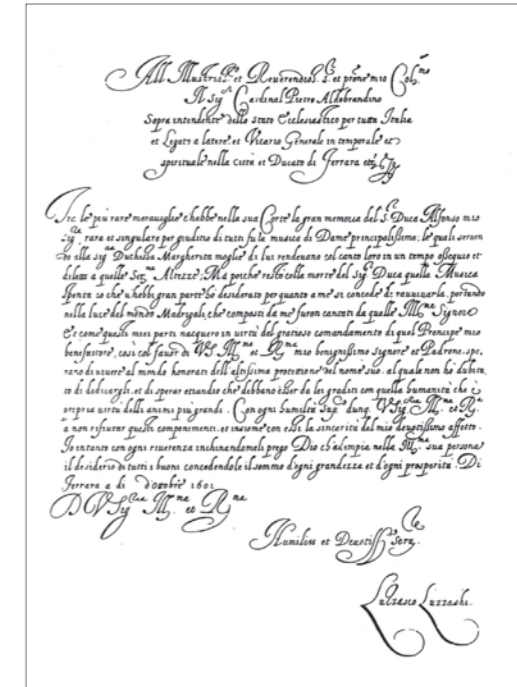 All Illustris.mo et Reverendiss. S. et prōne mio Col.mo
Il Sig.r Cardinal Pietro Aldobrandino
Sopra intendente dello stato Ecclesiastico per tutta Italia
et Legato a latere, et Vicario Generale in temporale et
spirituale nella città et Ducato di Ferrara etc.
Tra le più rare meraviglie c'hebbe nella sua Corte la gran memoria del S. Duca Alfonso mio
sig. rara et singulare per giuditio di tutti fu la musica di Dame principalissime; le quali serven
do alla sig. Duchessa Margherita moglie di lui rendevano col canto loro in un tempo ossequio et
diletto a quelle Ser.me Altezze; Ma poiche restò colla morte del Sig. Duca quella Musica
spenta, io che v'hebbi gran parte hò desiderato per quanto a me si concede di ravvivarla, portando
nella luce del mondo Madrigali, che composti da me furon cantati da quelle Ill.me Signore
E come questi miei parti nacquero in virtù del gratioso comandamento di quel Prencipe mio
benefattore, così col favor di VS Ill.ma et R.ma mio benignissimo signore et Padrone, spe,
rano di vivere al mondo honorati dell'altissima protetione del nome suo, al quale non hò dubita,
to di dedicargli, et di sperar etiandio che debbano esser da lei graditi con quella humanità che è
propria virtù delli animi più grandi. Con ogni humiltà Sup. dunq. V Sig. Ill.ma et R.ma
a non rifiutar questi componimenti, et insieme con essi la sincerità del mio devotissimo affetto.
Io intanto con ogni riverenza inchinandomeli prego Dio ch'adempia nella Ill.ma sua persona
il desiderio di tutti i buoni concedendole il sommo d'ogni grandezza et d'ogni prosperità. Di
Ferrara a di d'ottobre 1601
D V Sig. Ill.ma et R.ma
Humiliss et Devotiss serv.
Luzzasco Luzzaschi.